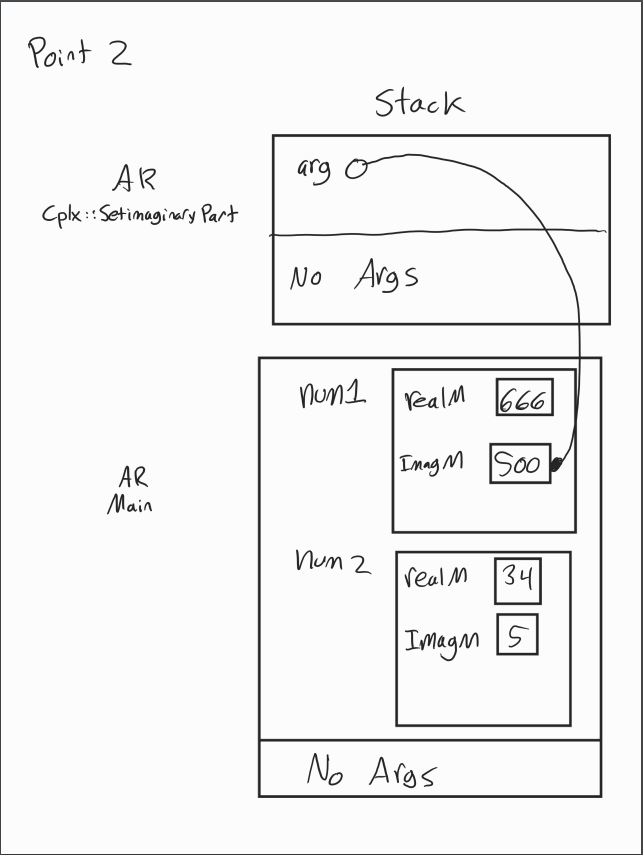 Point 2
Stack
AR
Cplx::Setimaginary Part
arg
No Args
num1
realM
666
ImagM
500
AR
Main
Num 2
realM
34
ImagM
5
No Args